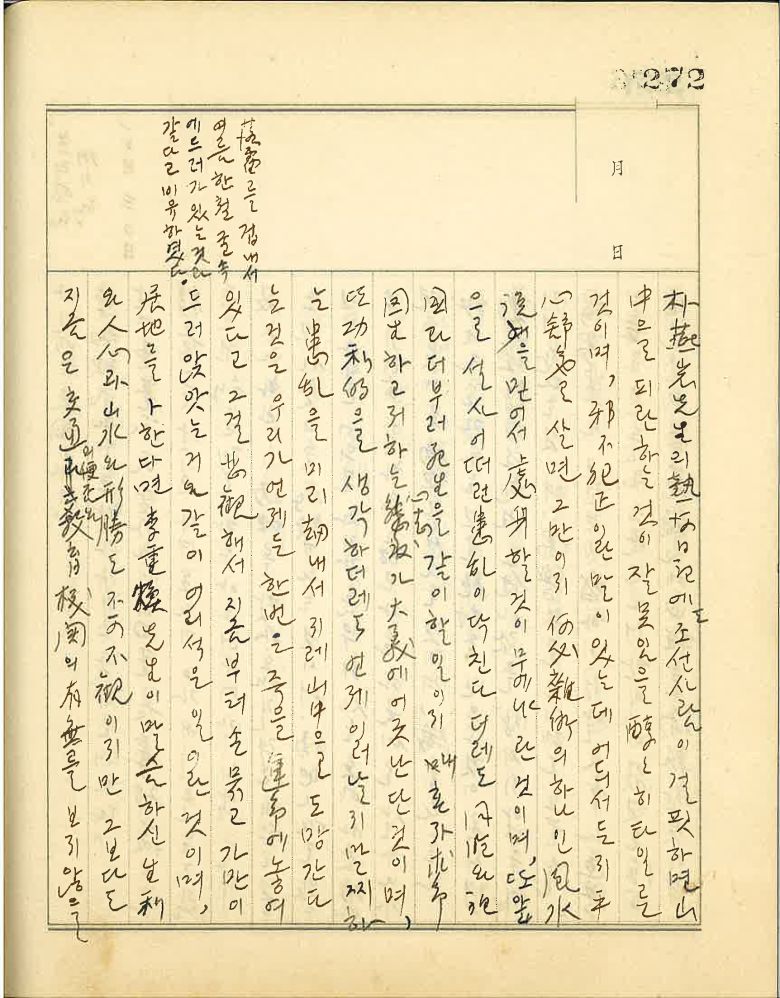 272
月
日
朴燕岩先生의 熱河日記에도 조선사람이 걸핏하면 山
中으로 피란하는 것이 잘못임을 醇々히 타일른
것이며, 邪不犯正이란 말이 있는데 어듸서든지 平
心舒氣로 살면 그만이지 何必雜術의 하나인 風水
으로 설사 어떠런 患乱이 닥친다 더레도 同胞와
国과 더부러 死生을 갈이 할 일이지 혼자
하고저하는 心志가 大義에 어긋난단 것이며,
또 功利的을 생각하더레도 언제 일러날지 말찌하
는 患乱을 미리 劫내서 지레 山中으로 도망간다
는 것은 우리가 언제든 한번은 죽을 運命에 놓여
있다고 그걸 悲観해서 지금부터 손 묶고 가만이
드러앉앗는 거와 갈이 어리석은 일이란 것이며,
居地를 卜한다면 李重煥先生이 말슴하신 生利
와 人心과 山水와 形勝도 不可不観이지만 그보다도
지금은 交通의 便否와 教育機関의 有無를 보지 않을
落雷를 겁내서
여름 한철 굴속
에 드러가 있는 것과
갈다고 비유하였다.